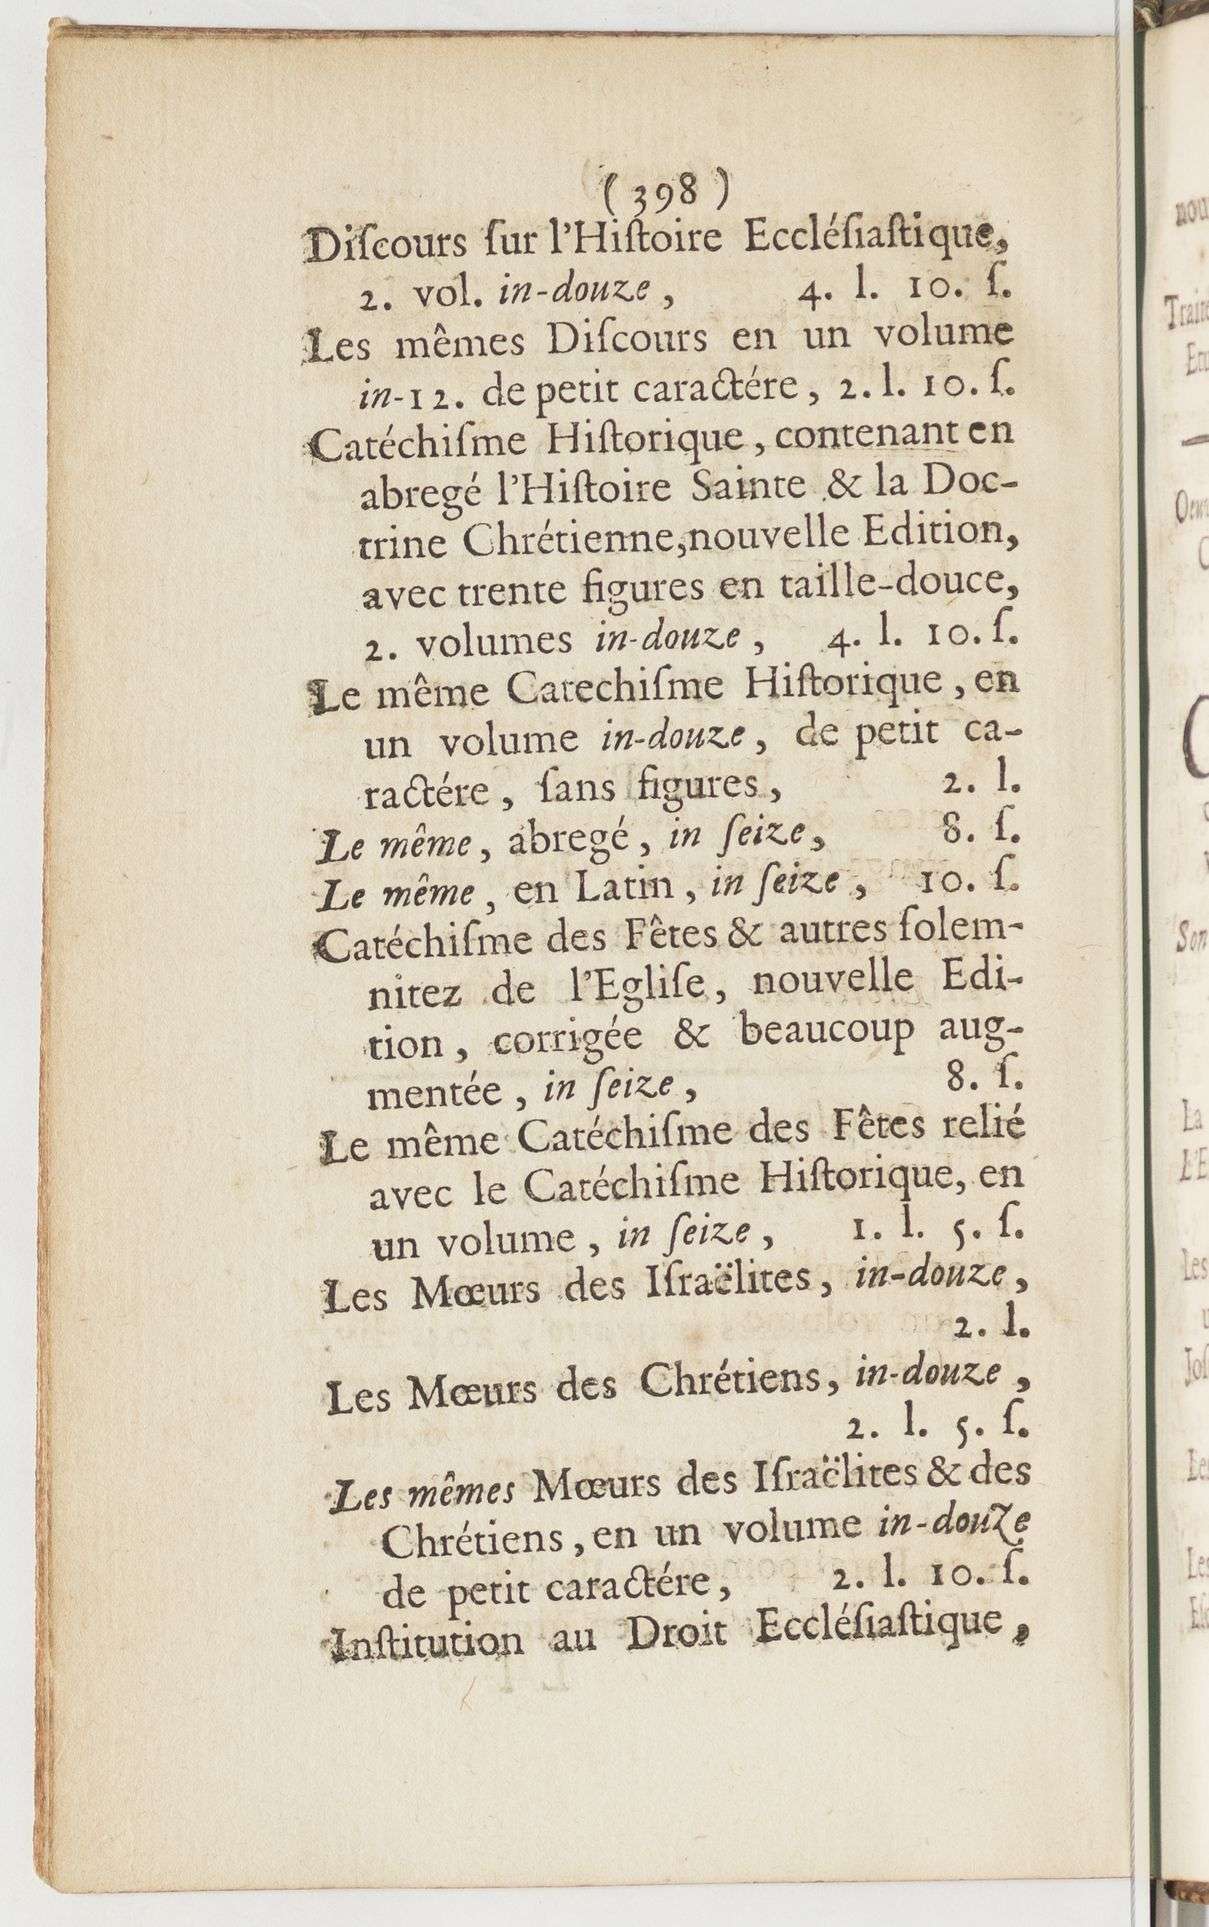 (398)
Diſcours ſur l'Hiſtoire Eccléſiaſtique,
2. vol. in-douze, 4. l. 10. ſ.
Les mêmes Diſcours en un volume
in-12. de petit caractére, 2. l. 10. ſ.
Catéchiſme Hiſtorique, contenant en
abregé l'Hiſtoire Sainte & la Doc-
trine Chrétienne, nouvelle Edition,
avec trente figures en taille-douce,
2. volumes in-douze, 4. l. 10. ſ.
Le même Catechiſme Hiſtorique, en
un volume in-douze, de petit ca-
ractére, ſans figures, 2. l.
Le même, abregé, in ſeize, 8. ſ.
Le même, en Latin, in ſeize, 10. ſ.
Catéchiſme des Fêtes & autres ſolem-
nitez de l'Egliſe, nouvelle Edi-
tion, corrigée & beaucoup aug-
mentée, in ſeize, 8. ſ.
Le même Catéchiſme des Fêtes relié
avec le Catéchiſme Hiſtorique, en
un volume, in ſeize, 1. l. 5. ſ.
Les Mœurs des Iſraëlites, in-douze,
2. l.
Les Mœurs des Chrétiens, in-douze,
2. l. 5. ſ.
Les mêmes Mœurs des Iſraëlites & des
Chrétiens, en un volume in-douze
de petit caractére, 2. l. 10. ſ.
Inſtitution au Droit Eccléſiaſtique,